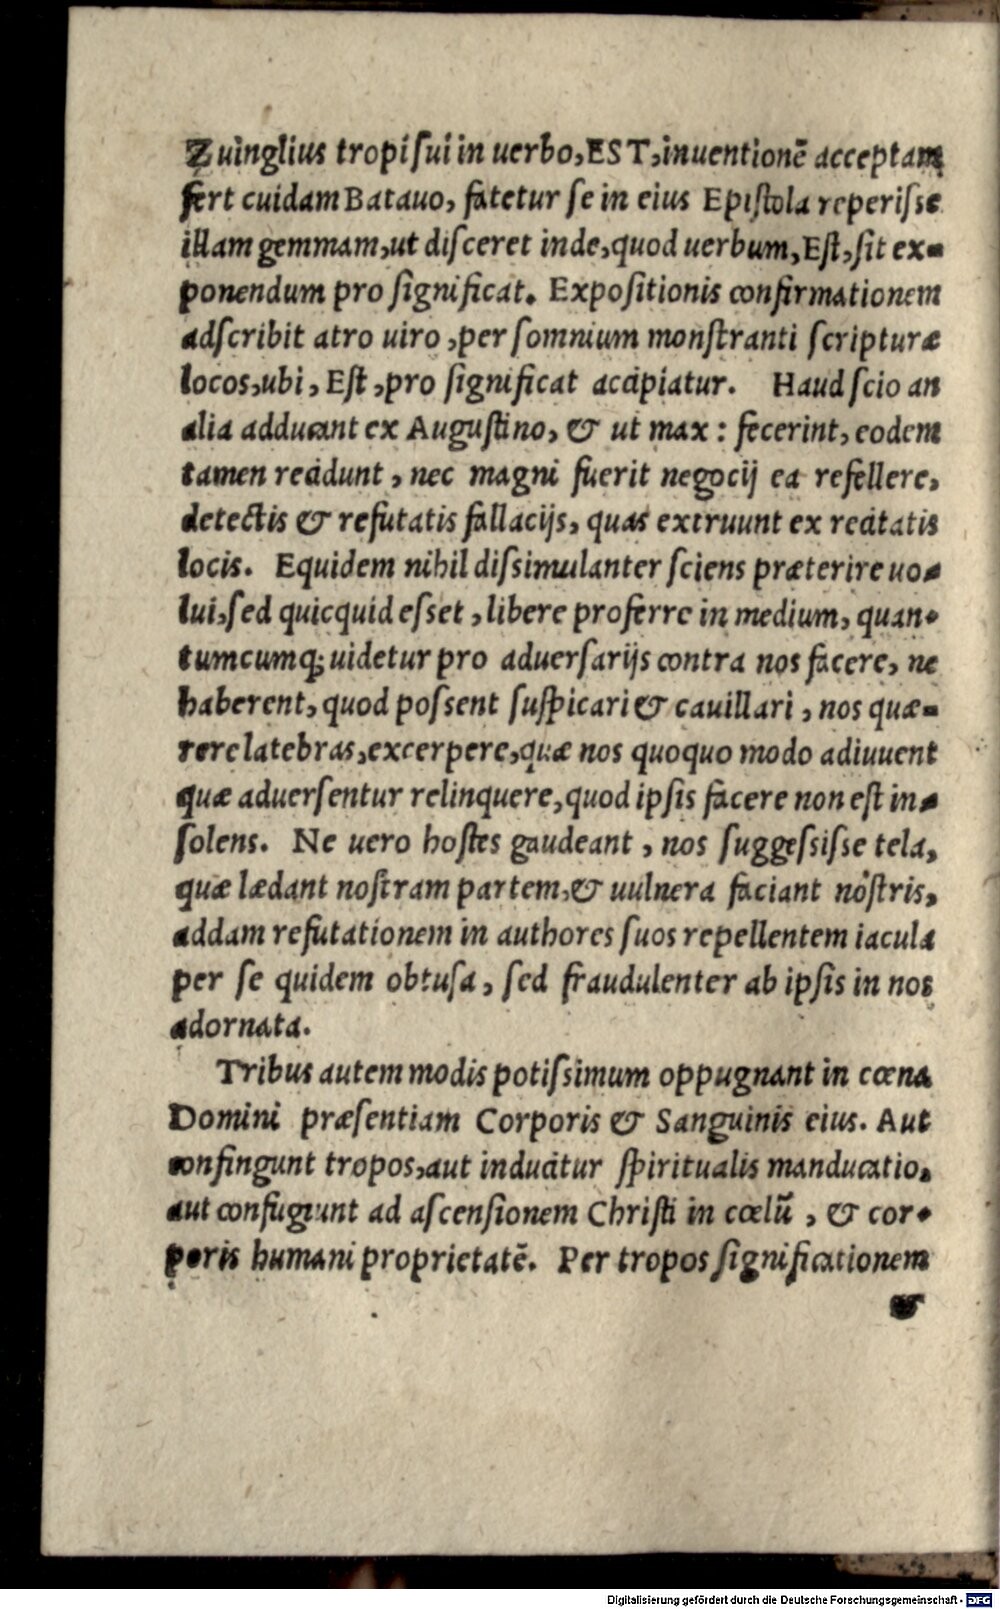 Zuinglius tropi sui in uerbo, EST, inuentionē acceptam
fert cuidam Batauo, fatetur se in eius Epistola reperisse
illam gemmam, ut disceret inde, quod uerbum, Est, sit ex-
ponendum pro significat. Expositionis confirmationem
adscribit atro uiro, per somnium monstranti scripturæ
locos, ubi, Est, pro significat accipiatur. Haud scio an
alia adducant ex Augustino, & ut max: fecerint, eodem
tamen recidunt, nec magni fuerit negocij ea refellere,
detectis & refutatis fallacijs, quas extruunt ex recitatis
locis. Equidem nihil dissimulanter sciens præterire uo-
lui, sed quicquid esset, libere proferre in medium, quan-
tumcumq; uidetur pro aduersarijs contra nos facere, ne
haberent, quod possent suspicari & cauillari, nos quæ-
rere latebras, excerpere, quæ nos quoquo modo adiuuent
quæ aduersentur relinquere, quod ipsis facere non est in-
solens. Ne uero hostes gaudeant, nos suggessisse tela,
quæ lædant nostram partem, & uulnera faciant nostris,
addam refutationem in authores suos repellentem iacula
per se quidem obtusa, sed fraudulenter ab ipsis in nos
adornata.
Tribus autem modis potissimum oppugnant in cœna
Domini præsentiam Corporis & Sanguinis eius. Aut
confingunt tropos, aut inducitur spiritualis manducatio,
aut confugiunt ad ascensionem Christi in cœlū, & cor-
poris humani proprietatē. Per tropos significationem
&
Digitalisierung gefördert durch die Deutsche Forschungsgemeinschaft - DFG